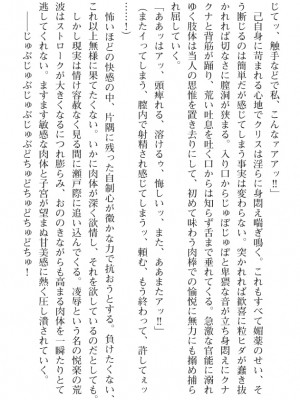 てッ、触手などで私、こんなァアァッ!!」
　己自身に苛まれる心地でクリスは淫らに身悶え喘ぎ鳴く。これもすべて媚薬のせい、そ
う断じるのは簡単だが感じてしまう事実は変わらない。突かれれば歓喜に粒ヒダが蠢き抜
かれれば切なさに膣洞が狭まる。入り口からじゅぼじゅぼと卑猥な音が立ち身悶えにクナ
クナと背筋が踊り、荒い吐息を吐く口からは知らず舌まで垂れてくる。急激な官能に溺れ
ゆく肢体は当人の思惟を置き去りにして、初めて味わう肉棒での愉悦に無力にも搦め捕ら
れ屈していく。
「ああッはアッ、頭痺れる、溶けるゥ、悔しいッ、また、ああまたアッ!!」
（またイッてしまう、膣内で射精され感じてしまうッ、頼む、もう終わって、許してぇッ
……！）
　怖いほどの快感の中、片隅に残った自制心が微かな力で抗おうとする。負けたくない、
これ以上無様に果てたくない。いかに肉体が深く欲情し、それを欲しているのだとしても。
　しかし現実は情け容赦なく見る間に瀬戸際に追い込んでくる。凌辱という名の悦楽の荒
波はストロークが大きくなるにつれ膨らみ、おののきながらも高まる肉体を一瞬たりとて
逃してくれない。ますます敏感な肉体と子宮が望まぬ甘美感に熱く圧し潰されていく。
――じゅぶじゅぶじゅぶじゅぶどちゅどちゅどちゅどちゅ！